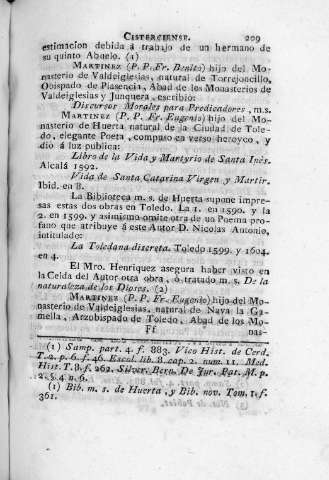 CISTERCIENSE. 209
estimacion debida á trabajo de un hermano de
su quinto Abuelo. (1)
MARTINEZ (P. P. Fr. Benito) hijo del Mo-
nasterio de Valdeiglesias, natural de Torrejoncillo,
Obispado de Plasencia, Abad de los Monasterios de
Valdeiglesias y Junquera, escribió:
Discursos Morales para Predicadores, m.s.
MARTINEZ (P. P. Fr. Eugenio) hijo del Mo-
nasterio de Huerta natural de la Ciudad de Tole-
do, elegante Poeta, compuso en verso heroyco, y
dió á luz publica:
Libro de la Vida y Martyrio de Santa Inés.
Alcalá 1592.
Vida de Santa Catarina Virgen y Martir.
Ibid. en 8.
La Biblioteca m. s. de Huerta supone impre-
sas estas dos obras en Toledo. La 1. en 1590. y la
2. en 1599. y asimismo omite otra de un Poema pro-
fano que atribuye á este Autor D. Nicolas Antonio,
intitulado:
La Toledana discreta. Toledo 1599. y 1604.
en 4.
El Mro. Henriquez asegura haber visto en
la Celda del Autor otra obra, ó tratado m. s. De la
naturaleza de los Dioses. (2)
MARTINEZ (P. P. Fr. Eugenio) hijo del Mo-
nasterio de Valdeiglesias, natural de Nava la Ga-
mella, Arzobispado de Toledo, Abad de los Mo-
Ff nas-
(1) Samp. part. 4. f. 883. Vico Hist. de Cerd.
T. 2. p. 6. f. 46. Escol. lib. 8. cap. 2. num. 11. Mod.
Hist. T. 8. f. 262. Silver. Bern. De Jur. Pat. M. p.
2. §. 4. n. 6.
(1) Bib. m. s. de Huerta, y Bib. nov. Tom. 1. f.
361.